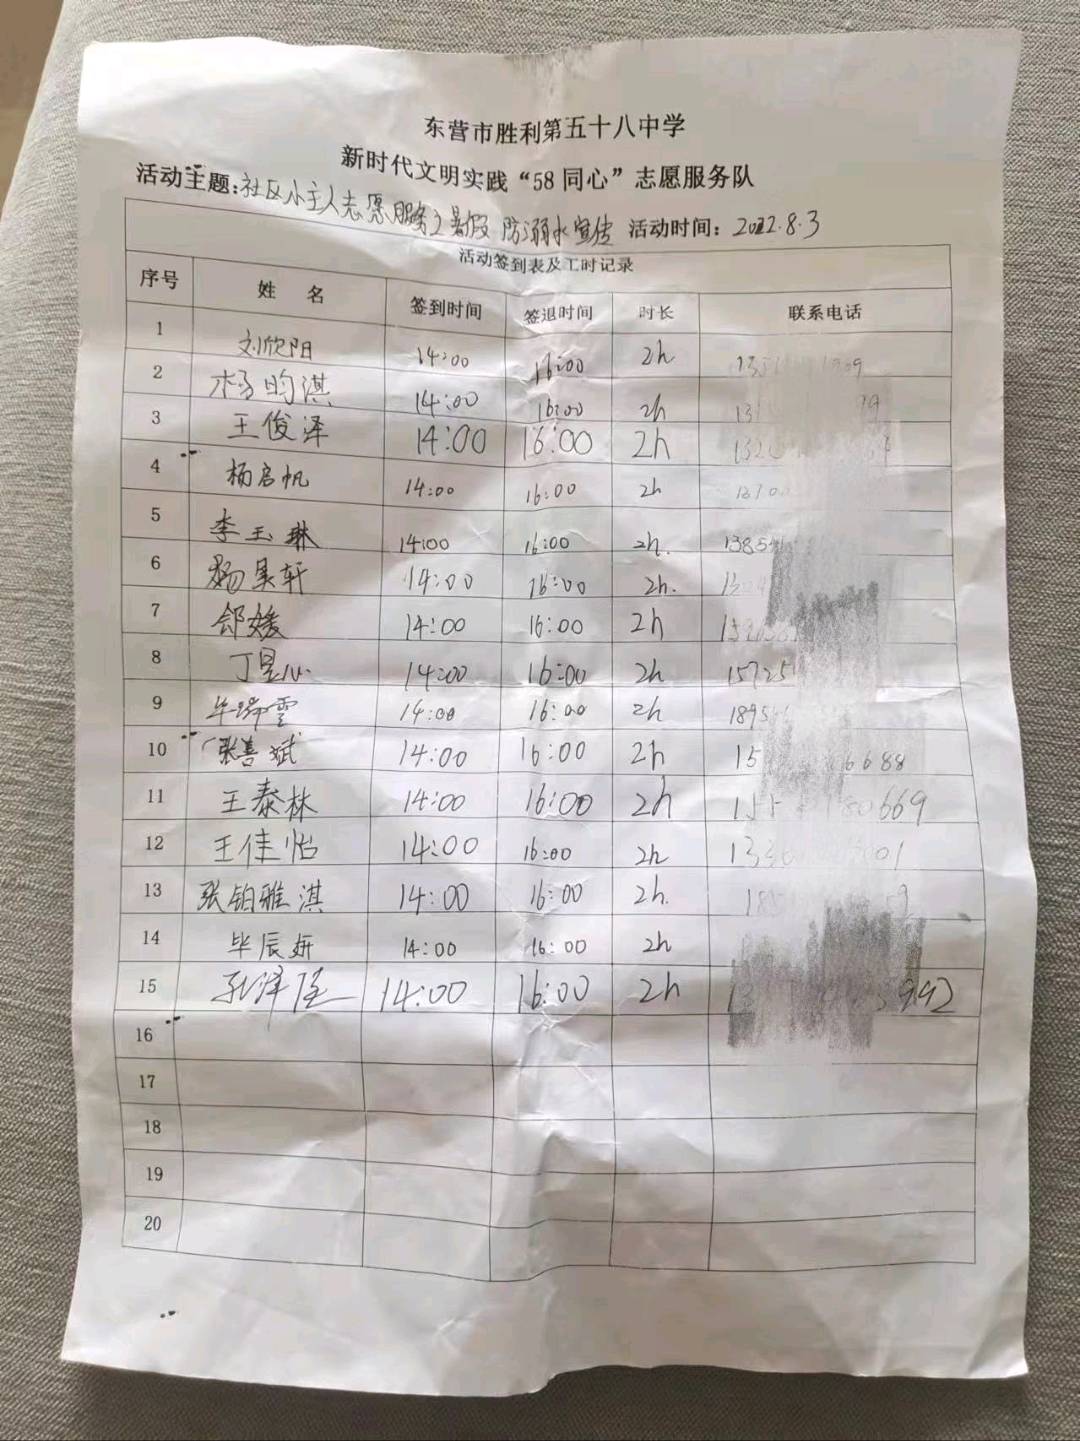 东营市胜利第五十八中学
新时代文明实践“58同心”志愿服务队
活动主题:社区小主人志愿服务之暑假防溺水宣传 活动时间：2022.8.3
活动签到表及工时记录
序号 姓 名 签到时间 签退时间 时长 联系电话
1 刘欣阳 14:00 16:00 2h
2 杨昀淇 14:00 16:00 2h
3 王俊泽 14:00 16:00 2h
4 杨启帆 14:00 16:00 2h
5 李玉琳 14:00 16:00 2h.
6 杨昊轩 14:00 16:00 2h.
7 邰媛 14:00 16:00 2h
8 丁昱心 14:00 16:00 2h 15725
9 14:00 16:00 2h
10 张善斌 14:00 16:00 2h 15 6688
11 王泰林 14:00 16:00 2h 80669
12 王佳怡 14:00 16:00 2h
13 张铂雅淇 14:00 16:00 2h.
14 毕辰妍 14:00 16:00 2h
15 14:00 16:00 2h
16
17
18
19
20